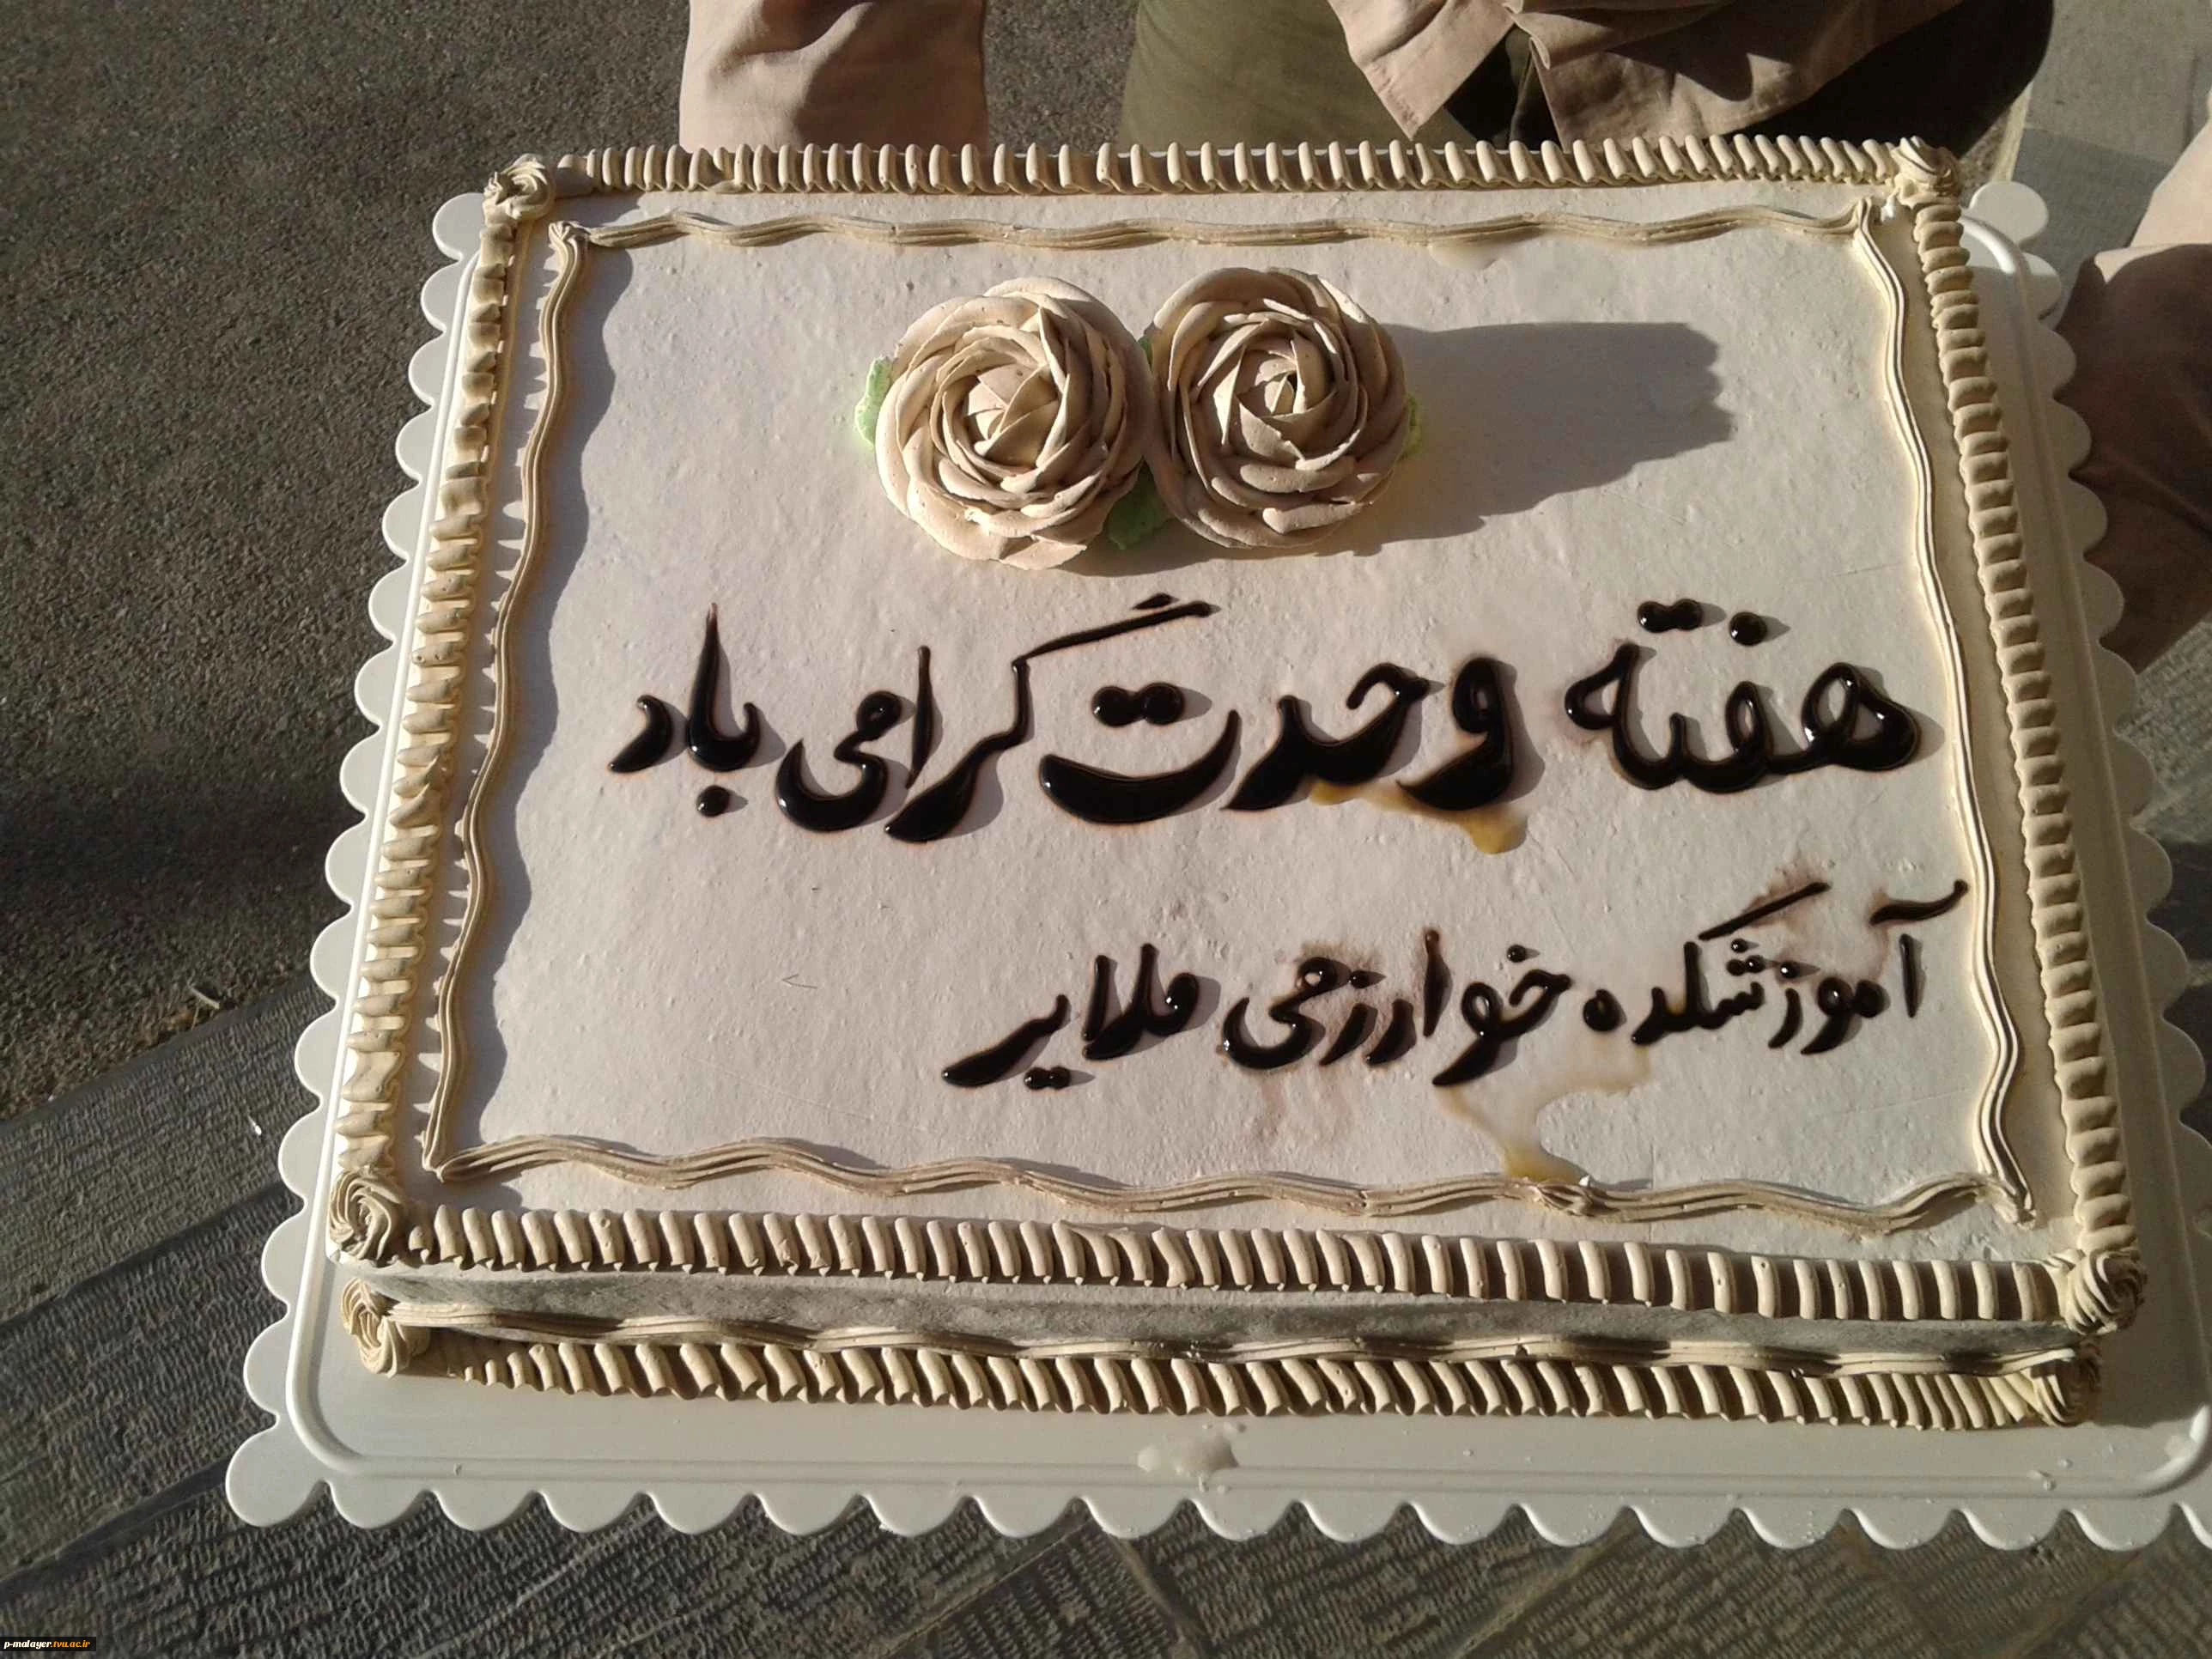 هفته وحدت گرامی باد
آموزشکده خوارزمی ملایر
p-malayer.tvu.ac.ir